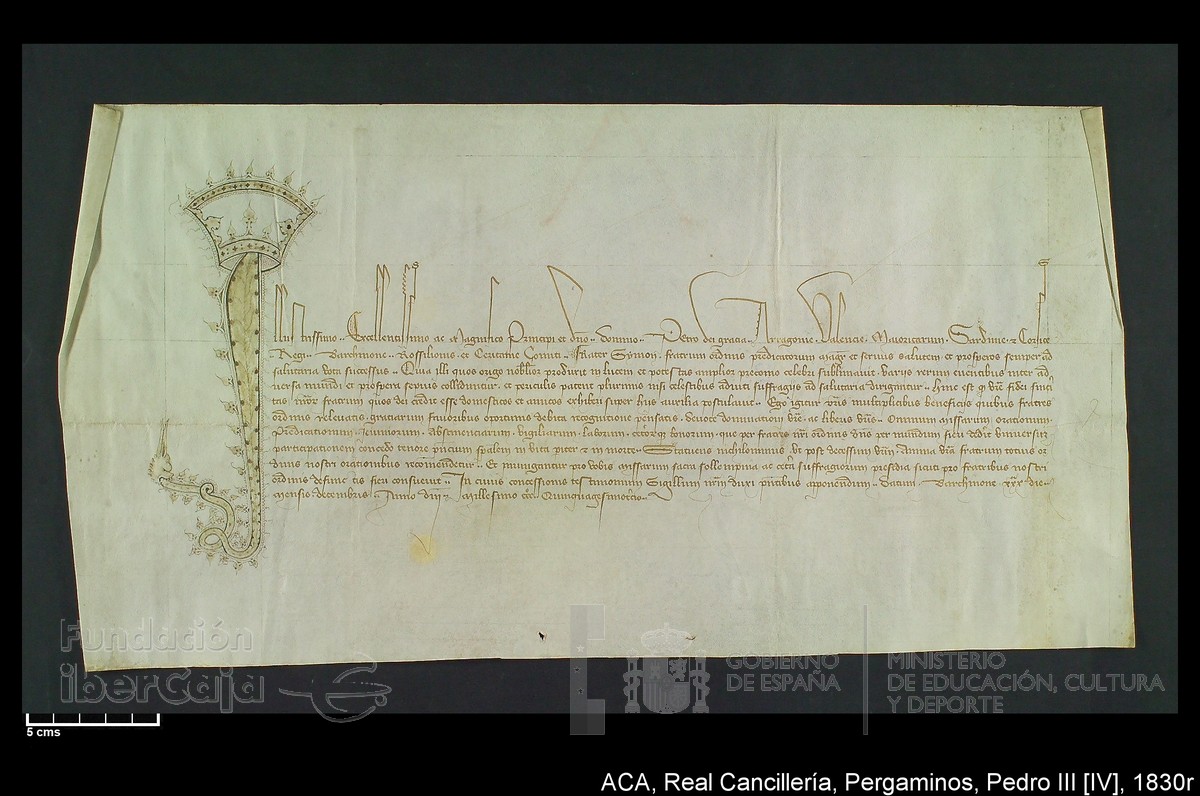 Illustrissimo. Excellentissimo ac Magnifico Principi et dno. domino. Petro dei gracia. Aragonie. Valencie. Maioricarum. Sardinie. et Corsice
Regi. Barchinone. Rossilionis. et Ceritanie Comiti. Frater Symon. fratrum ordinis predicatorum magr et servus salutem et prosperos semper ad
salutaria vota successus. Quia illi quos origo nobilior produxit in lucem et potestas amplior precomo celebri sublimavit. varijs rerum eventibus inter ad
versa mundi et prospera sepius colliduntur. et periculis patent plurimis nisi celestibus adiuti suffragijs ad salutaria dirigantur. Hinc est q vra fidei
tas nror fratrum quos dei credit esse domesticos et amicos exhiberi super hijs auxilia postulavit. Ego igitur vris multiplicibus beneficijs quibus fratres
ordinis relevatis. graciarum favoribus oportunis debita recognitione pensatis. devote dominationi vre ac liberis vris. Omnium missarum orationum.
Predicationum. Ieiuniorum. Abstinenciarum. vigiliarum. laborum. ceterorumq bonorum. que per fratres nri ordinis dns per mundum fieri dederit universis
participationem concedo tenore pncium spalem in vita piter et in morte. Statuens nichilominus. ut post decessum vrm anima vra fratrum totius or
dinis nostri orationibus recomendetur. Et iniungantur pro vobis missarum sacra sollempnia ac cetera suffragiorum presidia sicuti pro fratribus nostri
ordinis defunctis fieri consuevit. In cuius concessionis testimonium Sigillum nrm duxi pntibus apponendum. datum. Barchinone. xxx. die
mensis decembris. Anno dni Millesimo ccc Quinquagesimo
Fundación
iberCaja
GOBIERNO
DE ESPAÑA
MINISTERIO
DE EDUCACIÓN, CULTURA
Y DEPORTE
5 cms
ACA, Real Cancillería, Pergaminos, Pedro III [IV], 1830r